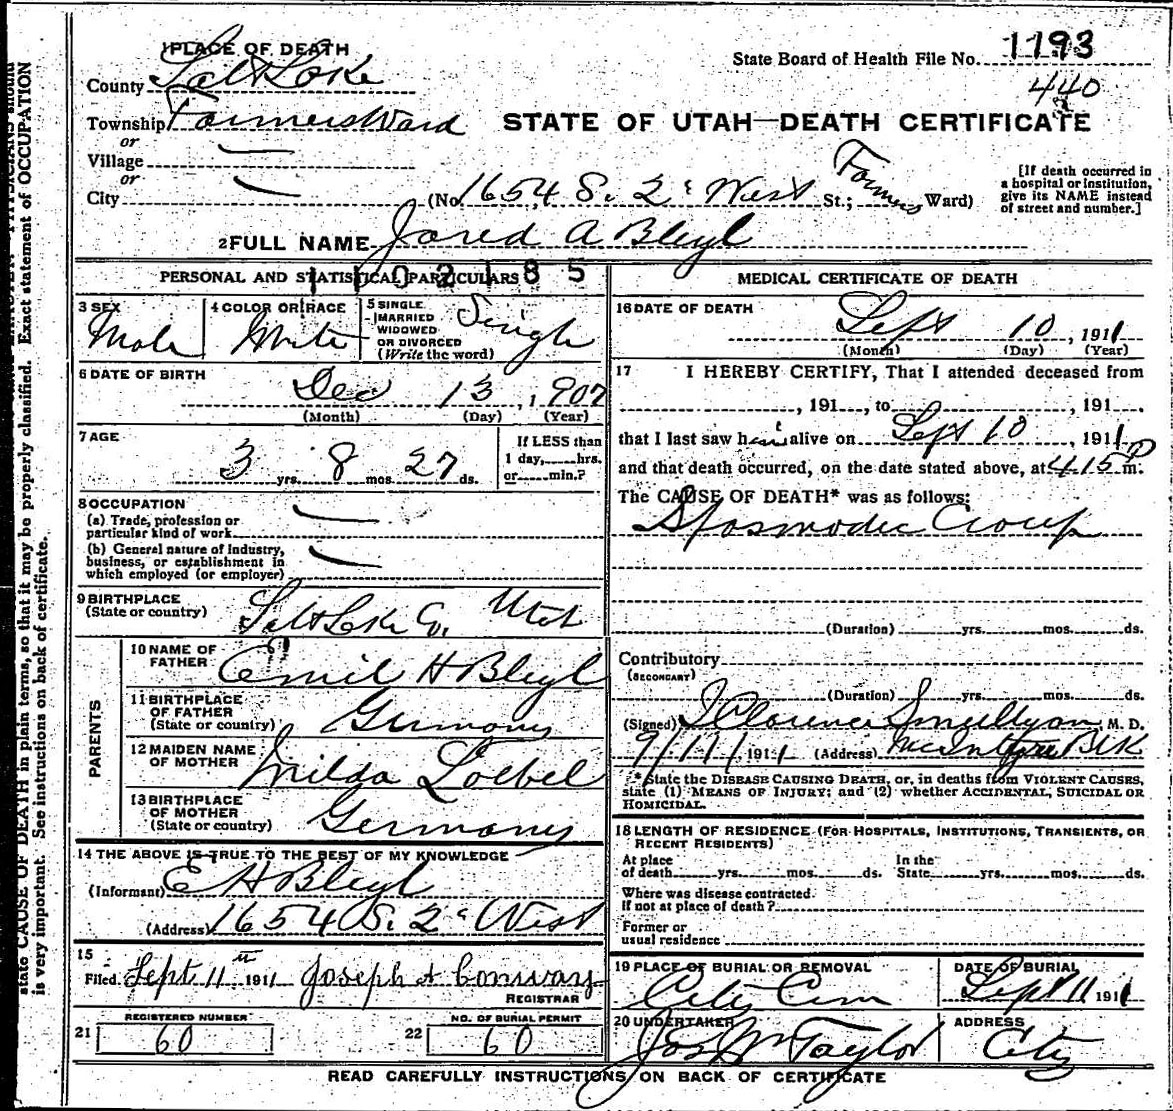 1 PLACE OF DEATH
County Salt Lake
Township Farmers Ward
or
Village —
or
City —
State Board of Health File No. 1193
440
STATE OF UTAH—DEATH CERTIFICATE
(No. 1654 S. 2d West St.; Farmers Ward)
[If death occurred in
a hospital or institution,
give its NAME instead
of street and number.]
2 FULL NAME Jared A Bleyl
PERSONAL AND STATISTICAL PARTICULARS
1102185
3 SEX
Male
4 COLOR OR RACE
White
5 SINGLE
MARRIED
WIDOWED
OR DIVORCED
(Write the word)
Single
6 DATE OF BIRTH
Dec 13, 1907
(Month) (Day) (Year)
7 AGE
3 yrs. 8 mos. 27 ds.
If LESS than
1 day, hrs.
or min.?
8 OCCUPATION
(a) Trade, profession or
particular kind of work —
(b) General nature of industry,
business, or establishment in
which employed (or employer) —
9 BIRTHPLACE
(State or country)
Salt Lake Co. Utah
PARENTS
10 NAME OF
FATHER
Emil H Bleyl
11 BIRTHPLACE
OF FATHER
(State or country)
Germany
12 MAIDEN NAME
OF MOTHER
Milda Loebel
13 BIRTHPLACE
OF MOTHER
(State or country)
Germany
14 THE ABOVE IS TRUE TO THE BEST OF MY KNOWLEDGE
(Informant) E H Bleyl
(Address) 1654 S. 2d West
15
Filed Sept 11th 1911 Joseph H Conway
REGISTRAR
21 REGISTERED NUMBER
60
22 NO. OF BURIAL PERMIT
60
MEDICAL CERTIFICATE OF DEATH
16 DATE OF DEATH
Sept 10, 1911
(Month) (Day) (Year)
17 I HEREBY CERTIFY, That I attended deceased from
, 191 , to , 191 .
that I last saw him alive on Sept 10, 1911
and that death occurred, on the date stated above, at 4.15 P m.
The CAUSE OF DEATH* was as follows:
Spasmodic Croup
(Duration) yrs. mos. ds.
Contributory
(SECONDARY)
(Duration) yrs. mos. ds.
(Signed) Clarence M. D.
9/11/1911 (Address) McIntyre Blk
* State the DISEASE CAUSING DEATH, or, in deaths from VIOLENT CAUSES,
state (1) MEANS OF INJURY; and (2) whether ACCIDENTAL, SUICIDAL OR
HOMICIDAL.
18 LENGTH OF RESIDENCE (FOR HOSPITALS, INSTITUTIONS, TRANSIENTS, OR
RECENT RESIDENTS)
At place
of death yrs. mos. ds.
In the
State yrs. mos. ds.
Where was disease contracted.
If not at place of death?
Former or
usual residence
19 PLACE OF BURIAL OR REMOVAL
City Cem
DATE OF BURIAL
Sept 11 1911
20 UNDERTAKER
Jos Wm Taylor
ADDRESS
City
READ CAREFULLY INSTRUCTIONS ON BACK OF CERTIFICATE
state CAUSE OF DEATH in plain terms, so that it may be properly classified. Exact statement of OCCUPATION
is very important. See instructions on back of certificate.